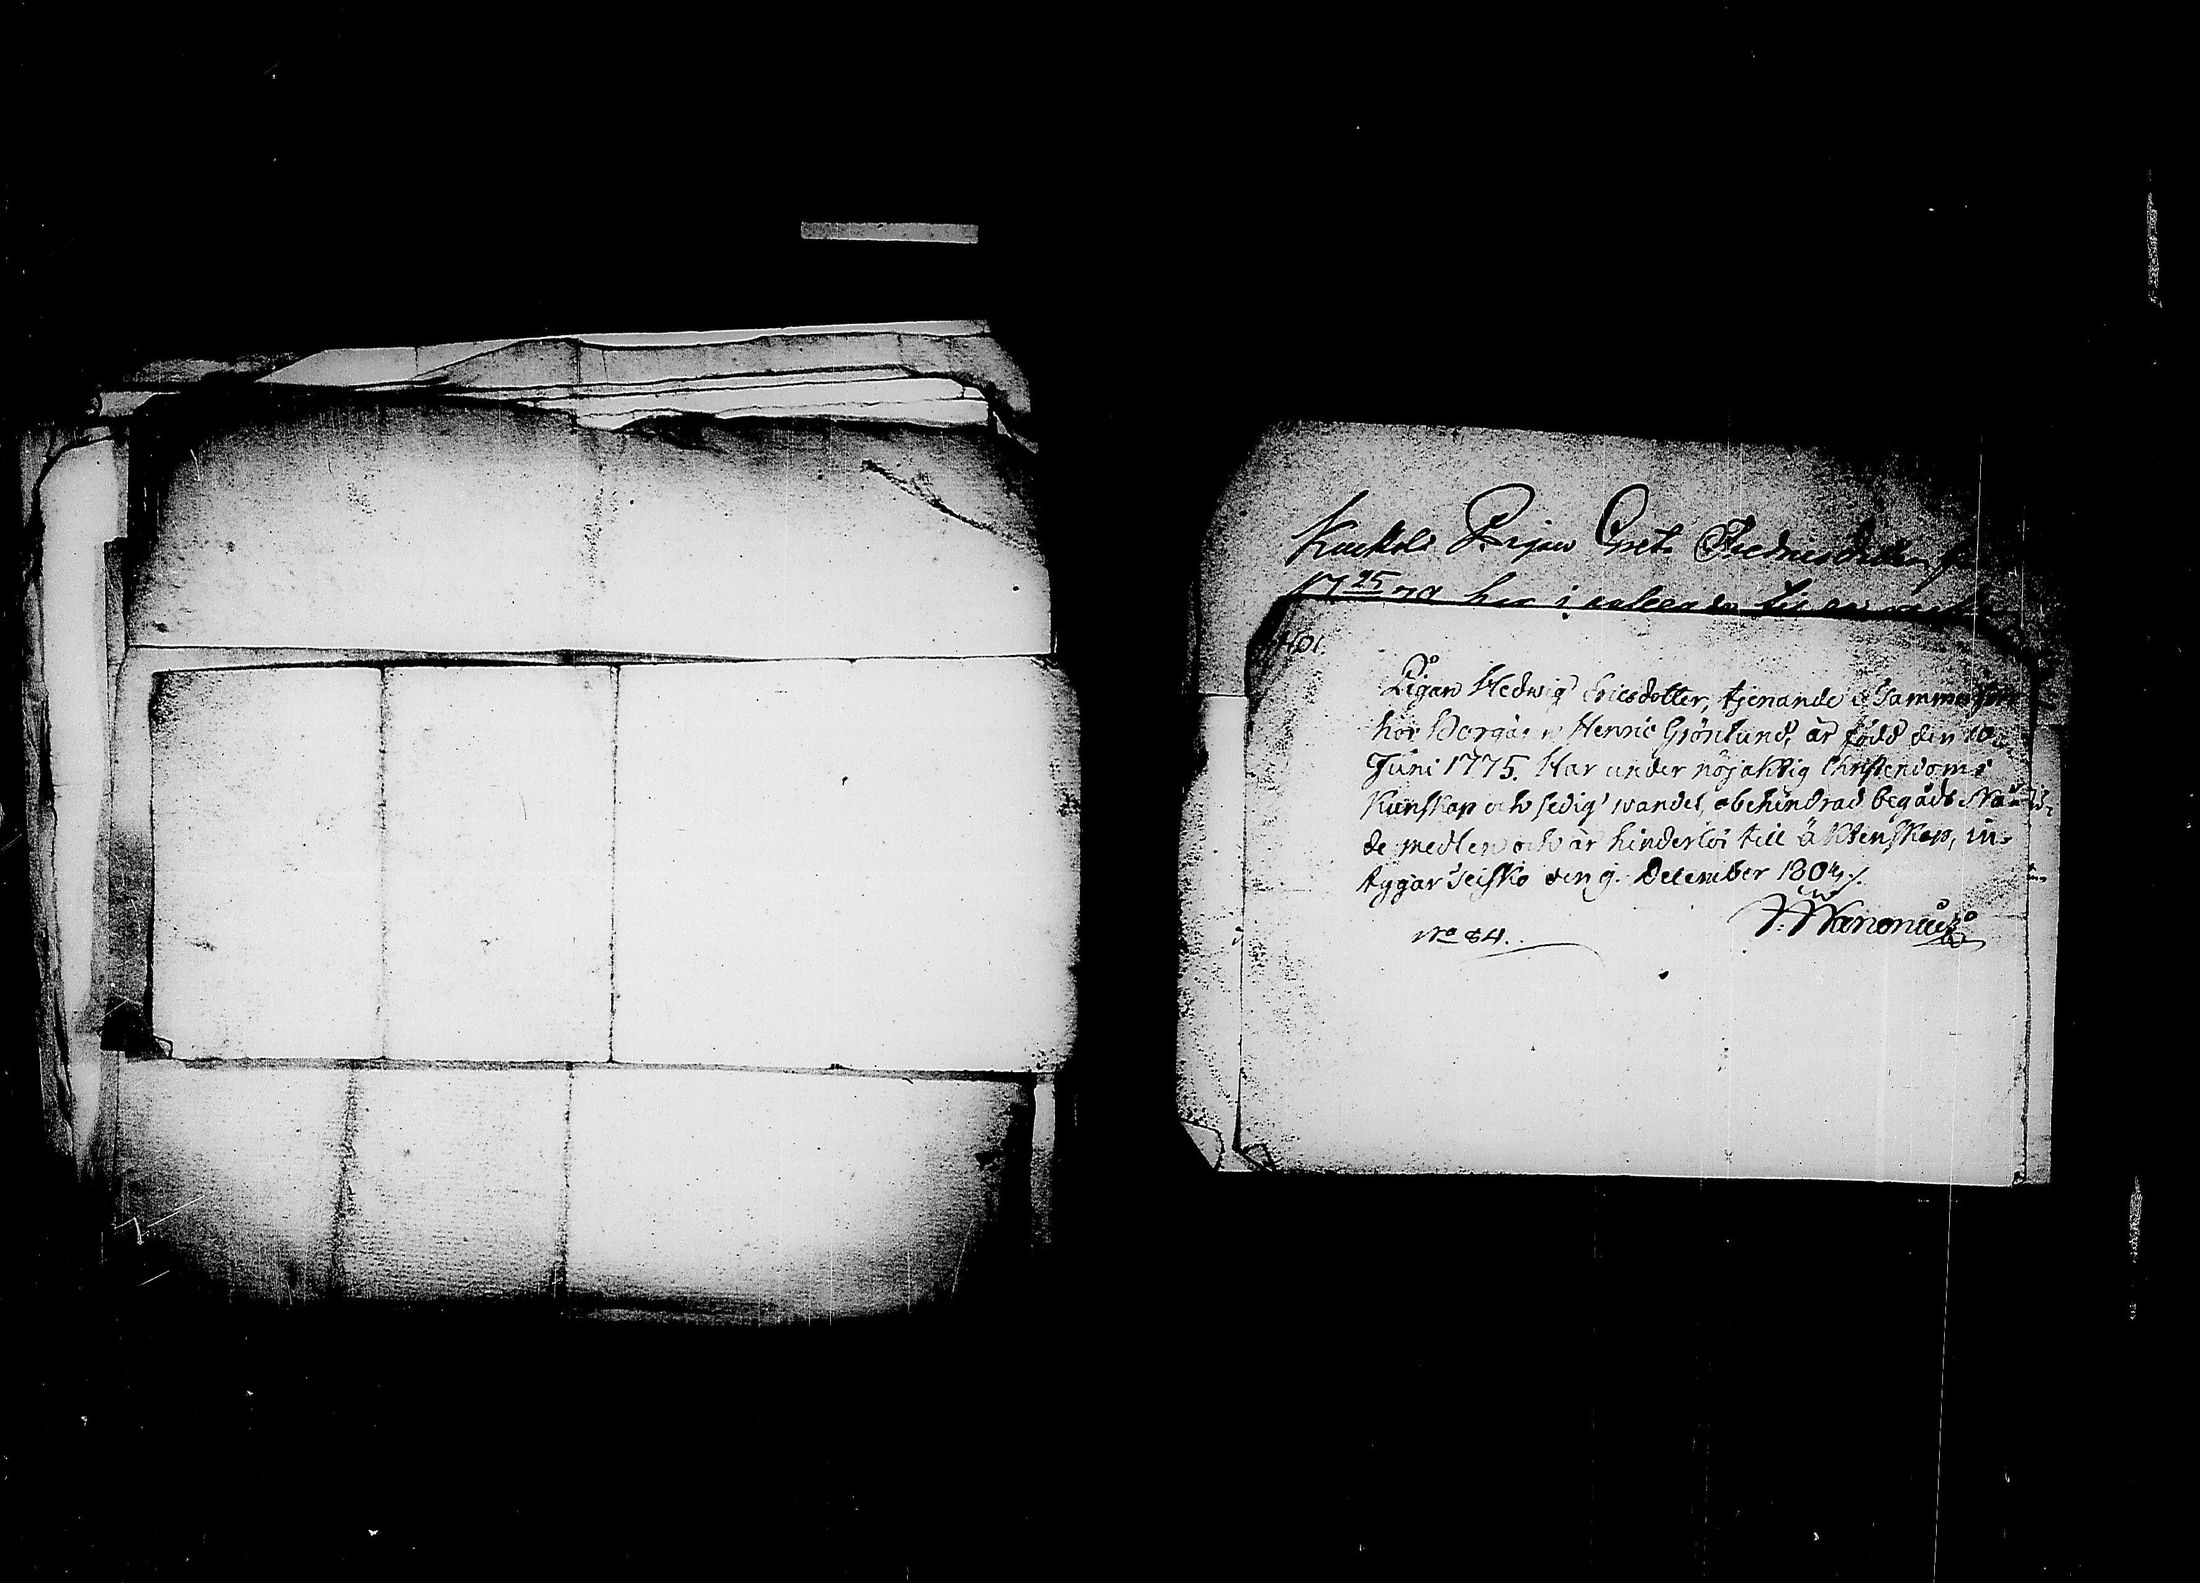 Kuckols Pigan Gret. Fredricsdotter
17 25/2 79 har i
401.
Pigan Hedwig Ericsdotter, tjenande i Sammal
hos Borgar: n Henric Grönlund, är född den 10
Juni 1775. Har under nöjaktig Christendoms
Kunskap och sedig wandel, obehindrad begådt Nå-
de medlen och är hinderlös till äktenskap, in-
tygar Teisko den 9. December 1804./.
No 84.